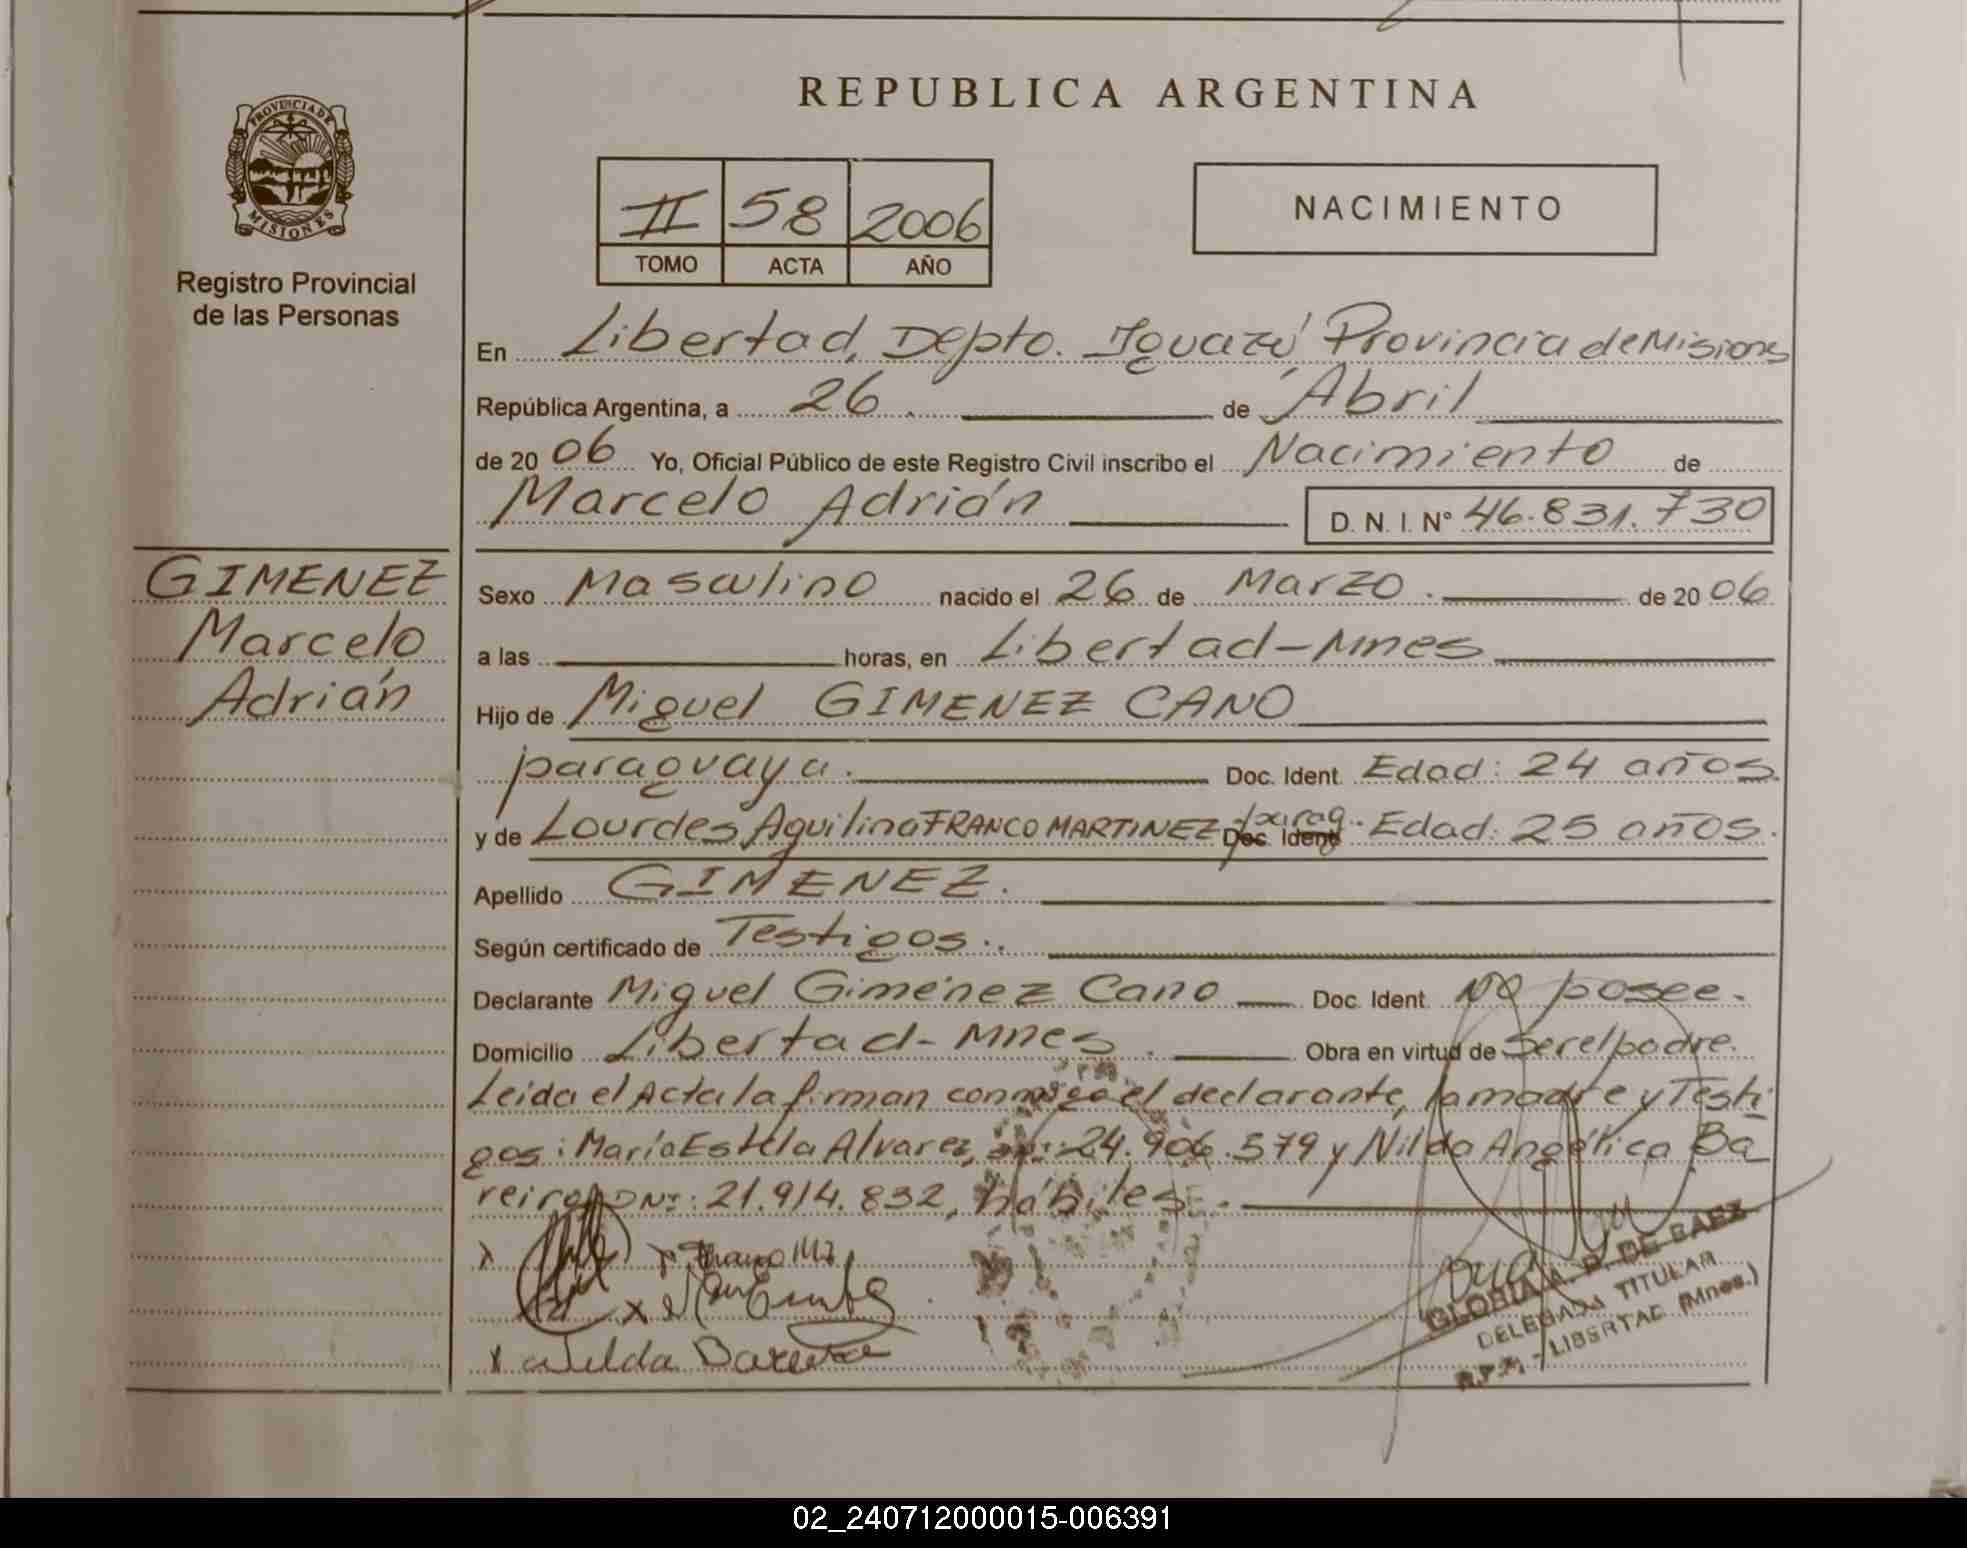 REPUBLICA ARGENTINA
PROVINCIA DE MISIONES
Registro Provincial
de las Personas
II 58 2006
TOMO ACTA AÑO
NACIMIENTO
En Libertad, Depto. Iguazú Provincia de Misiones
República Argentina, a 26. de Abril
de 20 06 Yo, Oficial Público de este Registro Civil inscribo el Nacimiento de
Marcelo Adrián D. N. I. N° 46.831.730
GIMENEZ
Marcelo
Adrián
Sexo Masculino nacido el 26 de Marzo. de 20 06
a las horas, en Libertad-Mnes
Hijo de Miguel GIMENEZ CANO
paraguaya. Doc. Ident. Edad: 24 años.
y de Lourdes Aquilina FRANCO MARTINEZ parag. Doc. Ident. Edad: 25 años.
Apellido GIMENEZ.
Según certificado de Testigos..
Declarante Miguel Giménez Cano Doc. Ident. No posee.
Domicilio Libertad-Mnes. Obra en virtud de ser el padre.
Leida el Acta la firman conmigo el declarante, la madre y Testi
gos: María Estela Alvarez, 24.906.579 y Nilda Angélica Ba
reiro, DNI: 21.914.832, hábiles.
x x Franco Mz
x
x Nilda Bareiro
GLORIA A. P. DE BAEZ
DELEGADA TITULAR
R.P.P. - LIBERTAD (Mnes.)
02_240712000015-006391